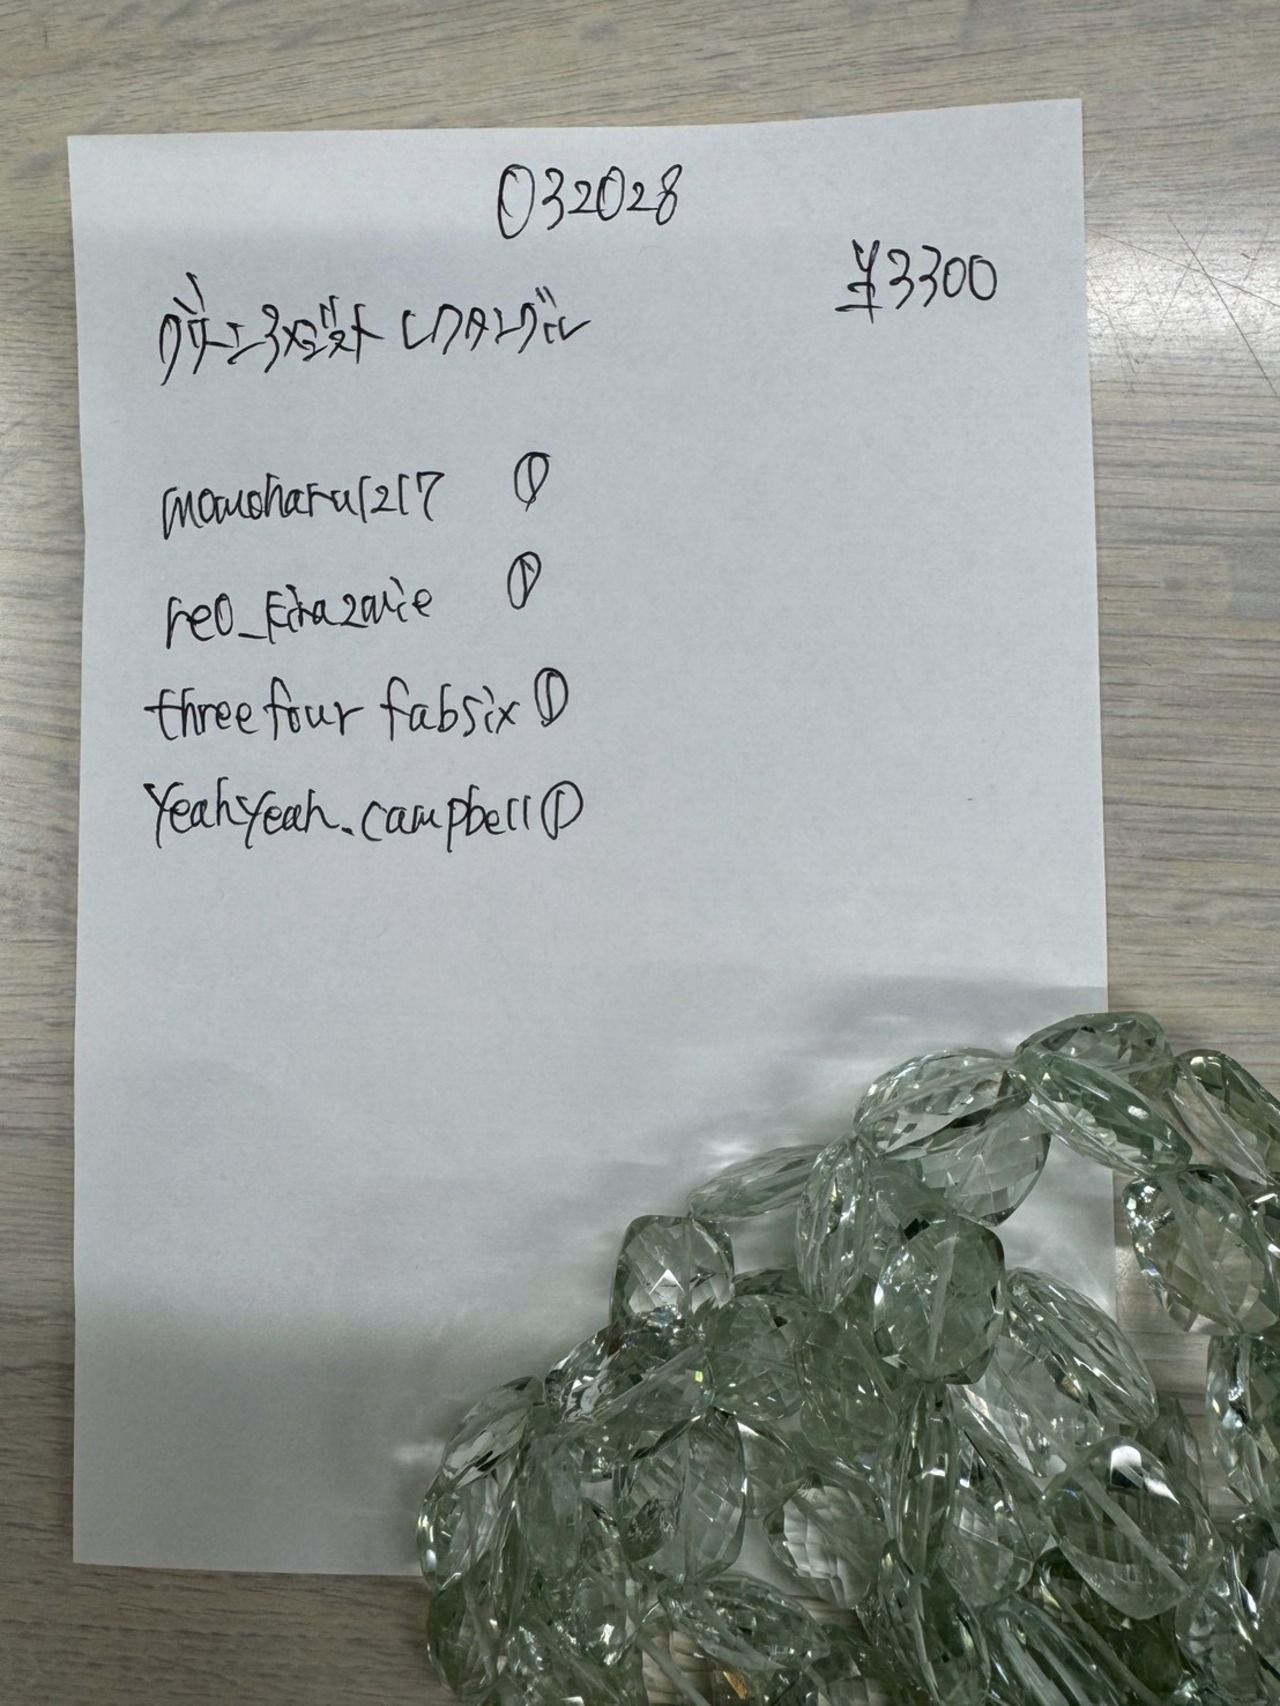 032028
¥3300
グリーンアメジスト レクタングル
momoharu1217 ①
reo_kirazavie ①
threefour fabsix ①
YeahYeah.campbell ①